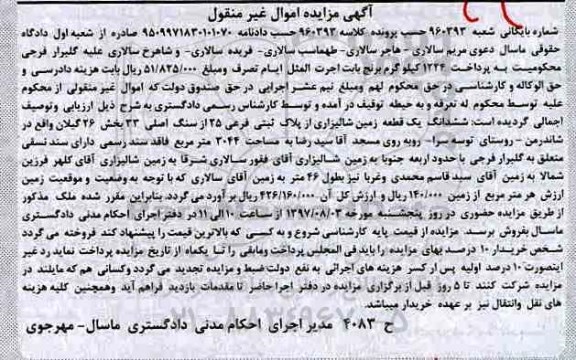 آگهی مزایده اموال غیر منقول
شماره بایگانی شعبه ۹۶۰۳۹۳ حسب پرونده کلاسه ۹۶۰۳۹۳ حسب دادنامه ۹۵۰۹۹۷۱۸۳۰۱۰۱۰۷۰ صادره از شعبه اول دادگاه
حقوقی ماسال دعوی مریم سالاری - هاجر سالاری- طهماسب سالاری- فریده سالاری- و شاهرخ سالاری علیه گلیرار فرجی
محکومیت به پرداخت ۱۲۲۴ کیلو گرم برنج بابت اجرت المثل ایام تصرف ومبلغ ۵۱/۸۲۵/۰۰۰ ریال بابت هزینه دادرسی و
حق الوکاله و کارشناسی در حق محکوم لهم ومبلغ نیم عشر اجرایی در حق صندوق دولت که اموال غیر منقولی از محکوم
علیه توسط محکوم له تعرفه و به حیطه توقیف در آمده و توسط کارشناس رسمی دادگستری به شرح ذیل ارزیابی وتوصیف
اجمالی گردیده است: ششدانگ یک قطعه زمین شالیزاری از پلاک ثبتی فرعی ۲۵ از سنگ اصلی ۳۳ بخش ۲۶ گیلان واقع در
شاندرمن - روستای توسه سرا- روبه روی مسجد آقا سید رضا به مساحت ۳۰۴۴ متر مربع فاقد سند رسمی دارای سند نسقی
متعلق به گلیرار فرجی با حدود اربعه جنوبا به زمین شالیزاری آقای غفور سالاری شرقا به زمین شالیزاری آقای کلهر فرزین
شمالا به زمین آقای سید قاسم محمدی وغربا نیز بطول ۴۶ متر به زمین آقای سالاری که با توجه به وضعیت و موقعیت زمین
ارزش هر متر مربع از زمین ۱۴۰/۰۰۰ ریال و ارزش کل آن ۴۲۶/۱۶۰/۰۰۰ ریال بر آورد می گردد. بنابراین مقرر شده ملک مذکور
از طریق مزایده حضوری در روز پنجشنبه مورخه ۱۳۹۷/۰۸/۰۳ از ساعت ۱۰ الی ۱۱ در دفتر اجرای احکام مدنی دادگستری
ماسال بفروش برسد. مزایده از قیمت پایه کارشناسی شروع و به کسی که بالاترین قیمت را پیشنهاد کند فروخته می گردد
شخص خریدار ۱۰ درصد بهای مزایده را باید فی المجلس پرداخت ومابقی را تا یکماه از تاریخ مزایده پرداخت نماید در غیر
اینصورت ۱۰ درصد اولیه پس از کسر هزینه های اجرائی به نفع دولت ضبط و مزایده تجدید می گردد وکسانی هم که مایلند در
مزایده شرکت کنند تا ۵ روز قبل از برگزاری مزایده در دفتر اجرا حاضر تا مقدمات بازدید فراهم آید وهمچنین کلیه هزینه
های نقل وانتقال نیز بر عهده خریدار میباشد.
ح ۴۰۸۳ مدیر اجرای احکام مدنی دادگستری ماسال- مهرجوی